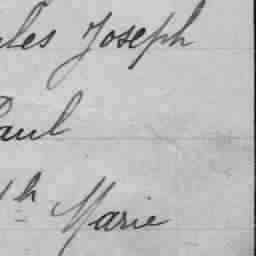 les Joseph
Paul
th Marie